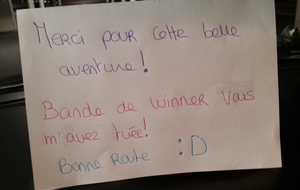 Merci pour cette belle
aventure!
Bande de winner vous
m'avez tuée!
Bonne Route :D